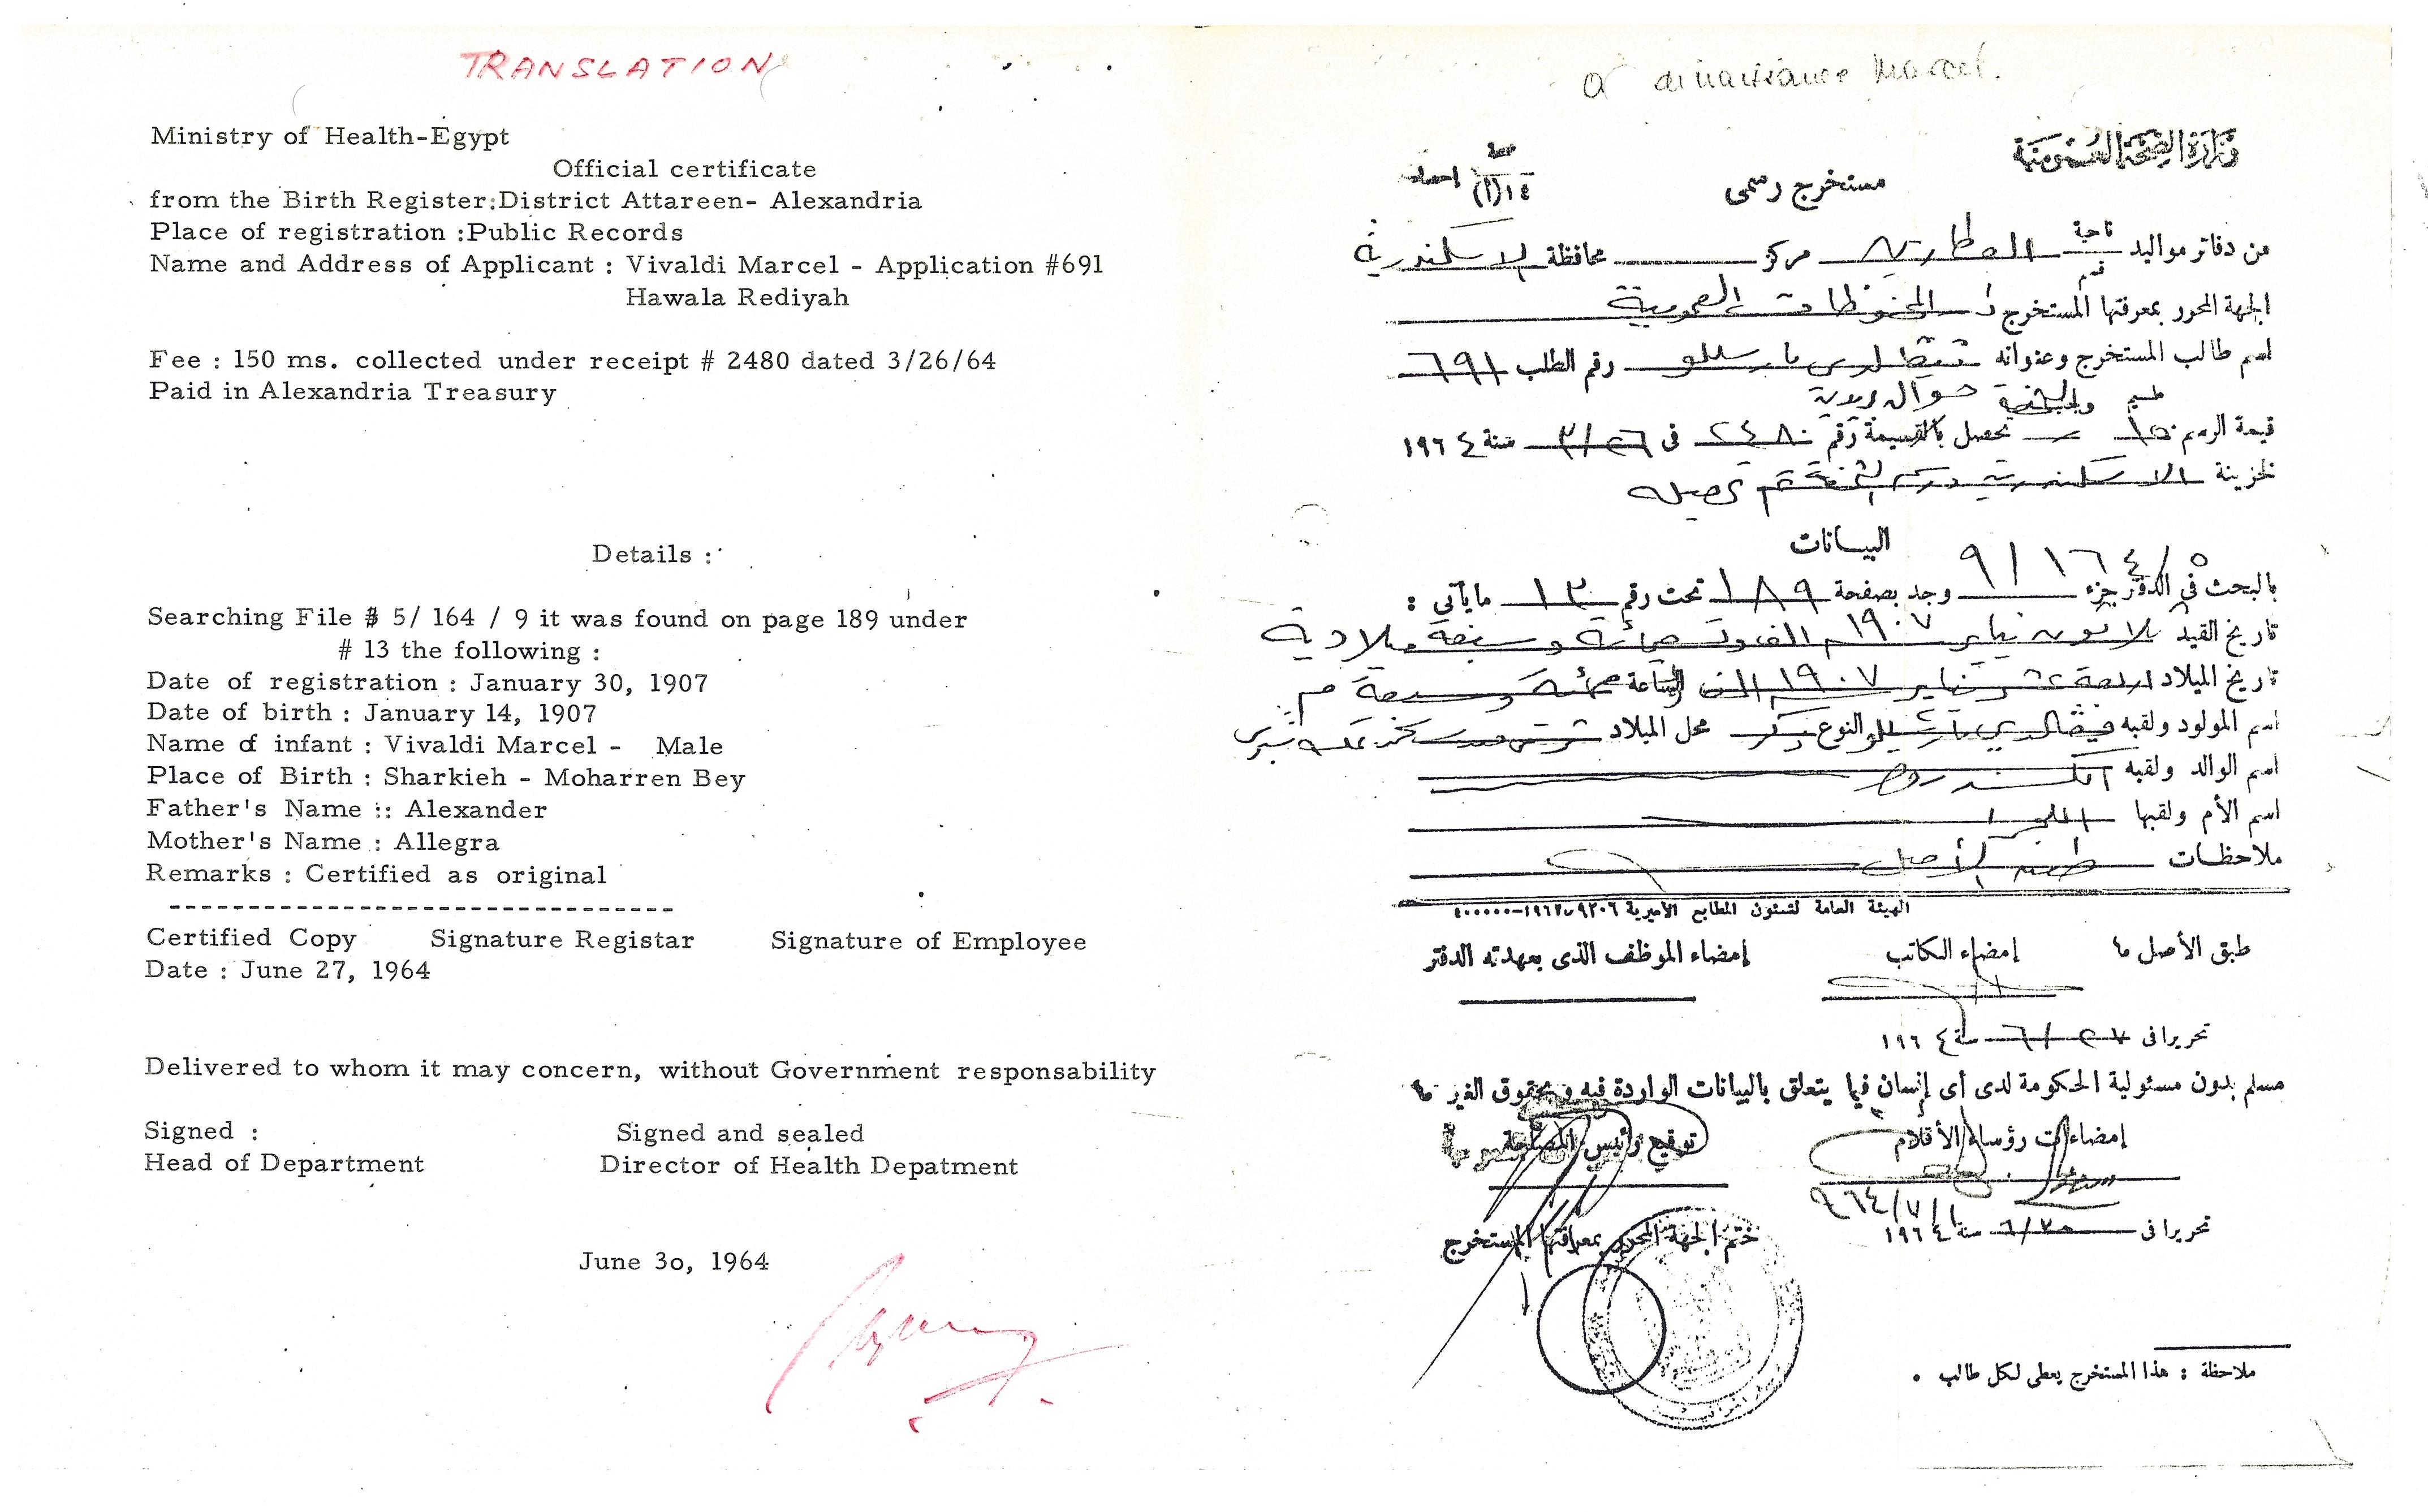 TRANSLATION
Ministry of Health-Egypt
Official certificate
from the Birth Register:District Attareen- Alexandria
Place of registration :Public Records
Name and Address of Applicant : Vivaldi Marcel - Application #691
Hawala Rediyah
Fee : 150 ms. collected under receipt # 2480 dated 3/26/64
Paid in Alexandria Treasury
Details :
Searching File # 5/ 164 / 9 it was found on page 189 under
# 13 the following :
Date of registration : January 30, 1907
Date of birth : January 14, 1907
Name of infant : Vivaldi Marcel - Male
Place of Birth : Sharkieh - Moharren Bey
Father's Name :: Alexander
Mother's Name : Allegra
Remarks : Certified as original
--------------------------------
Certified Copy Signature Registar Signature of Employee
Date : June 27, 1964
Delivered to whom it may concern, without Government responsability
Signed : Signed and sealed
Head of Department Director of Health Depatment
June 3o, 1964
Marcel.
وزارة الصحة العمومية
صحة
١٤(١)
مستخرج رسمى
من دفاتر مواليد ناحية قسم العطارين مركز محافظة الاسكندرية
الجهة المحرر بمعرفتها المستخرج المحفوظات العمومية
اسم طالب المستخرج وعنوانه مارسللو رقم الطلب ٦٩١
قيمة الرسم ١٥٠ تحصل بالقسيمة رقم ٢٤٨٠ فى ٣/٢٦ سنة ١٩٦٤
لخزينة الاسكندرية
البيانات
بالبحث فى الدفتر جزء ٩/١٦٤/٥ وجد بصفحة ١٨٩ تحت رقم ١٣ مايأتى :
تاريخ القيد ثلاثون يناير ١٩٠٧ م الف وتسعمائة وسبعة ميلادية
تاريخ الميلاد اربعة عشر يناير ١٩٠٧ الف الساعة تسعمائة وسبعة م
اسم المولود ولقبه فيڤالدي مارشيللو النوع ذكر محل الميلاد
اسم الوالد ولقبه
اسم الأم ولقبها
ملاحظات طبق الأصل
الهيئة العامة لشئون المطابع الأميرية
طبق الأصل ما إمضاء الكاتب إمضاء الموظف الذى بعهدته الدفتر
تحريرا فى ٦/٢٧ سنة ١٩٦٤
مسلم بدون مسئولية الحكومة لدى أى إنسان فيما يتعلق بالبيانات الواردة فيه وبحقوق الغير ما
إمضاءات رؤساء الأقلام توقيع رئيس المصلحة
٩٦٤/٧/١
تحريرا فى سنة ١٩٦٤ ختم الجهة المحرر بمعرفتها المستخرج
ملاحظة : هذا المستخرج يعطى لكل طالب .